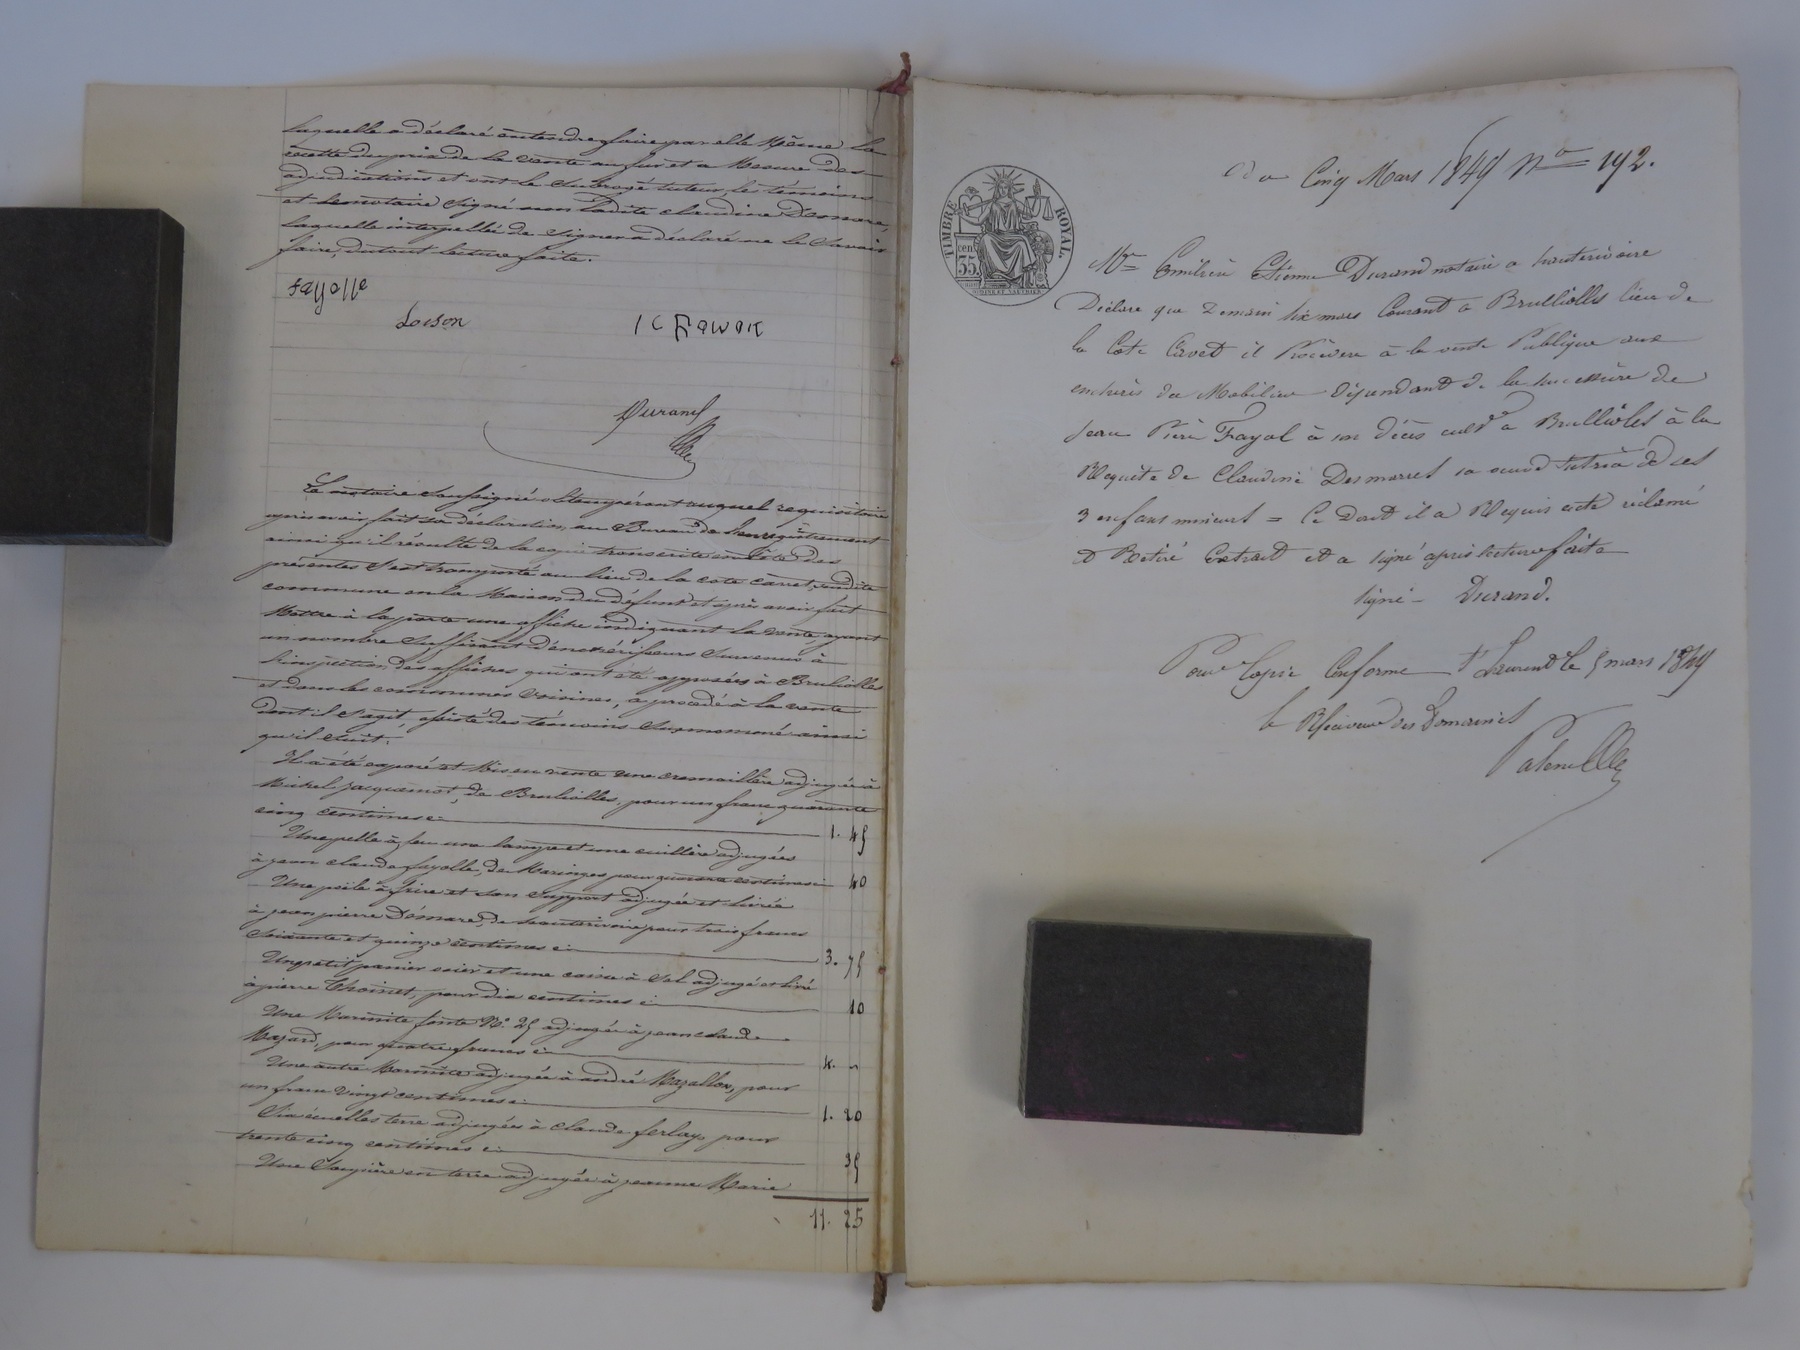 laquelle a déclaré entendre faire par elle Même la
recette du prix de la vente au fur et a Mesure des
adjudications et ont le subrogé tuteur, les témoins
et le notaire signé non Ladite claudine Demare,
laquelle interpellée de signer a déclaré ne le savoir
faire, du tout lecture faite.
fayolle
Loison
Durand
Le notaire soussigné obtempérant auquel requisitoire
après avoir fait sa déclaration au Bureau de l'enregistrement
ainsi qu'il résulte de la copie transcrite en tête des
présentes s'est transporté au lieu de la cote carret, susdite
commune en la Maison du défunt et après avoir fait
Mettre à la porte une affiche indiquant la vente, ayant
un nombre suffisant d'enchérisseurs survenus à
l'inspection des affiches qui ont été apposées à Brullioles
et dans les communes voisines, a procédé à la vente
dont il s'agit, assisté des témoins surnommé ainsi
qu'il suit.
Il a été exposé et Mis en vente une cremaillère adjugée à
Michel jacquemot, de Brullioles, pour un franc quarante
cinq centimes ci 1. 45
Une pelle à feu une lampe et une cuillère adjugées
à jean claude fayolle, de Maringes pour quarante centimes ci 40
Une poile à frire et son support adjugée et livrée
à jean pierre Démare, de hauterivoire pour trois francs
soixante et quinze centimes ci 3. 75
Un petit panier osier et une caisse à sel adjugé et livré
à pierre Thoinet, pour dix centimes ci 10
Une Marmite fonte N.° 25 adjugée à jean claude
Mazard, pour quatre francs ci 4. "
Une autre Marmite adjugée à andré Mazallon, pour
un franc vingt centimes ci 1. 20
Six écuelles terre adjugées à claude ferlay, pour
trente cinq centimes ci 35
Une Soupière en terre adjugée à jeanne Marie
11. 25
Du Cinq Mars 1849 No 192.
TIMBRE ROYAL
cen. 35
Mre Etienne Durand notaire a hauterivoire
Déclare que Demain six mars Courant a Brullioles lieu de
la Cote Carret il Procédera à la vente Publique aux
enchères du Mobilier dépendant de la succession de
Jean Pierre Fayol à son décès cultr a Brullioles à la
Requête de Claudine Desmarest sa veuve tutrice de ses
3 enfans mineurs = Ce Dont il a Requis acte réclamé
et Retiré Extrait et a signé après lecture faite
signé - Durand.
Pour Copie Conforme St Laurent le 5 mars 1849
le Receveur des Domaines